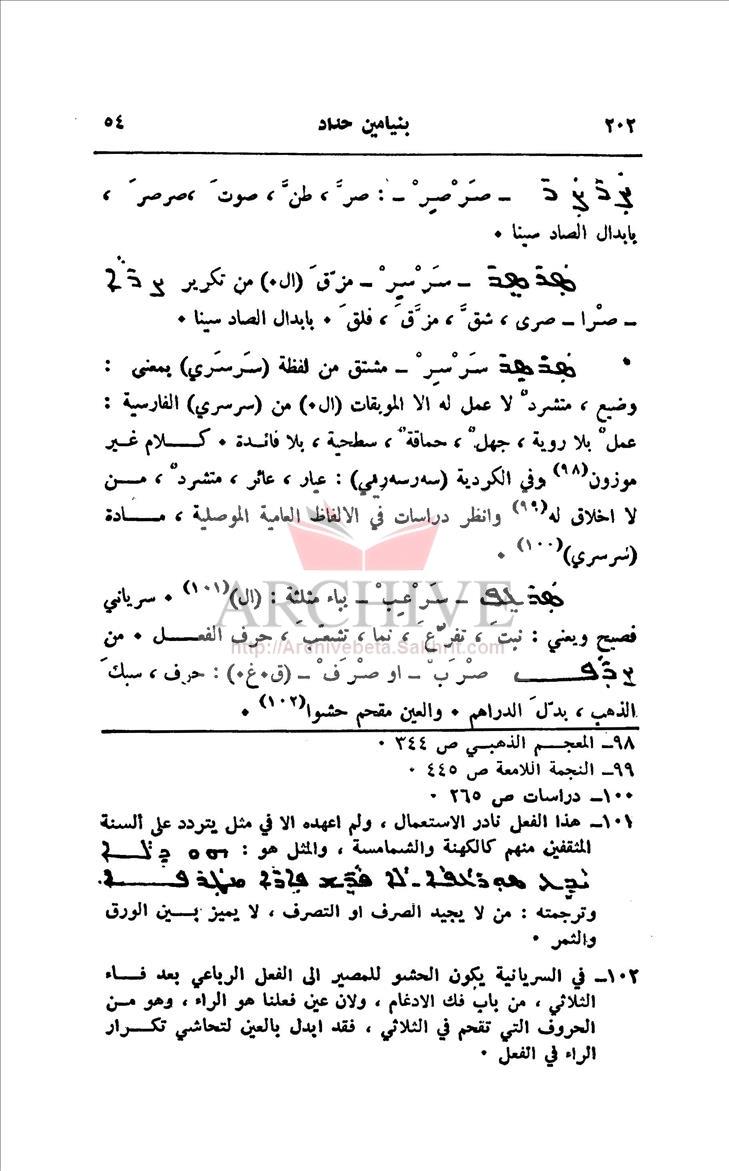 ٢٠٢ بنيامين حداد ٥٤
ܨܪܨܪ ـ صَرْصِرْ ـ : صرَّ ، طنَّ ، صوتَ ، صرصرَ ،
بابدال الصاد سينا ٠
ܣܪܣܪ ـ سَرْسِرْ ـ مزّقَ (ال٠) من تكرير ܨܪܐ
ـ صْرا ـ صرى ، شقَّ ، مزَّقَ ، فلقَ ٠ بابدال الصاد سينا ٠
• ܣܪܣܪ سَرْسِرْ ـ مشتق من لفظة (سَرسَري) بمعنى :
وضيع ، متشردٌ لا عمل له الا الموبقات (ال٠) من (سرسري) الفارسية :
عملٌ بلا روية ، جهلٌ ، حماقةٌ ، سطحية ، بلا فائدة ٠ كـــلام غير
موزون(٩٨) وفي الكردية : عيار ، عائر ، متشردٌ ، مــن
لا اخلاق له(٩٩) وانظر دراسات في الالفاظ العامية الموصلية ، مـــادة
(سَرسري)(١٠٠) ٠
ـ سَرْعِبْ ـ بباء مثلثة : (ال)(١٠١) ٠ سرياني
فصيح ويعني : نبتَ ، تفرّعَ ، نما ، تشعّبَ ، حرف الفعــل ٠ من
ܨܪܦ صْرَبْ ـ او صْرَفْ ـ (ق٠غ٠) : حرف ، سبكَ
الذهب ، بدّلَ الدراهم ٠ والعين مقحم حشوا(١٠٢) ٠
٩٨ـ المعجــم الذهبــي ص ٣٤٤ ٠
٩٩ـ النجمة اللامعة ص ٤٤٥ ٠
١٠٠ـ دراسات ص ٢٦٥ ٠
١٠١ـ هذا الفعل نادر الاستعمال ، ولم اعهده الا في مثل يتردد على ألسنة
المثقفين منهم كالكهنة والشمامسة ، والمثل هو :
وترجمته : من لا يجيد الصرف او التصرف ، لا يميز بــين الورق
والثمر ٠
١٠٢ـ في السريانية يكون الحشو للمصير الى الفعل الرباعي بعد فــاء
الثلاثي ، من باب فك الادغام ، ولان عين فعلنا هو الراء ، وهو مـن
الحروف التي تقحم في الثلاثي ، فقد ابدل بالعين لتحاشي تكــرار
الراء في الفعل ٠
ARCHIVE
http://Archivebeta.Sakhrit.com